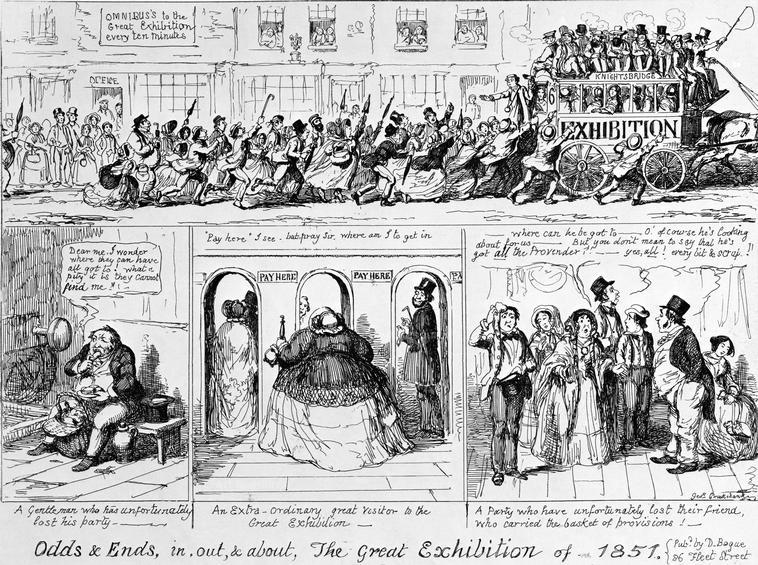 OMNIBUS'S to the
Great Exhibition
every ten minutes
OFFICE
KNIGHTSBRIDGE
EXHIBITION
Dear me. I wonder
where they can have
all got to! what a
pity it is they cannot
find me!!
"Pay here" I see. but pray Sir, where am I to get in
PAY HERE
PAY HERE
PA
where can he be got to — O! of course he's looking
about for us — But you don't mean to say that he's
got all the Provender?! — yes, all! every bit & scrap.!!
Geo. Cruikshank
A Gentleman who has unfortunately
lost his party —
An Extra-ordinary great Visitor to the
Great Exhibition —
A Party who have unfortunately lost their friend,
who carried the basket of provisions! —
Odds & Ends, in, out, & about, The Great Exhibition of 1851.
Pub.d by D. Bogue
86 Fleet Street